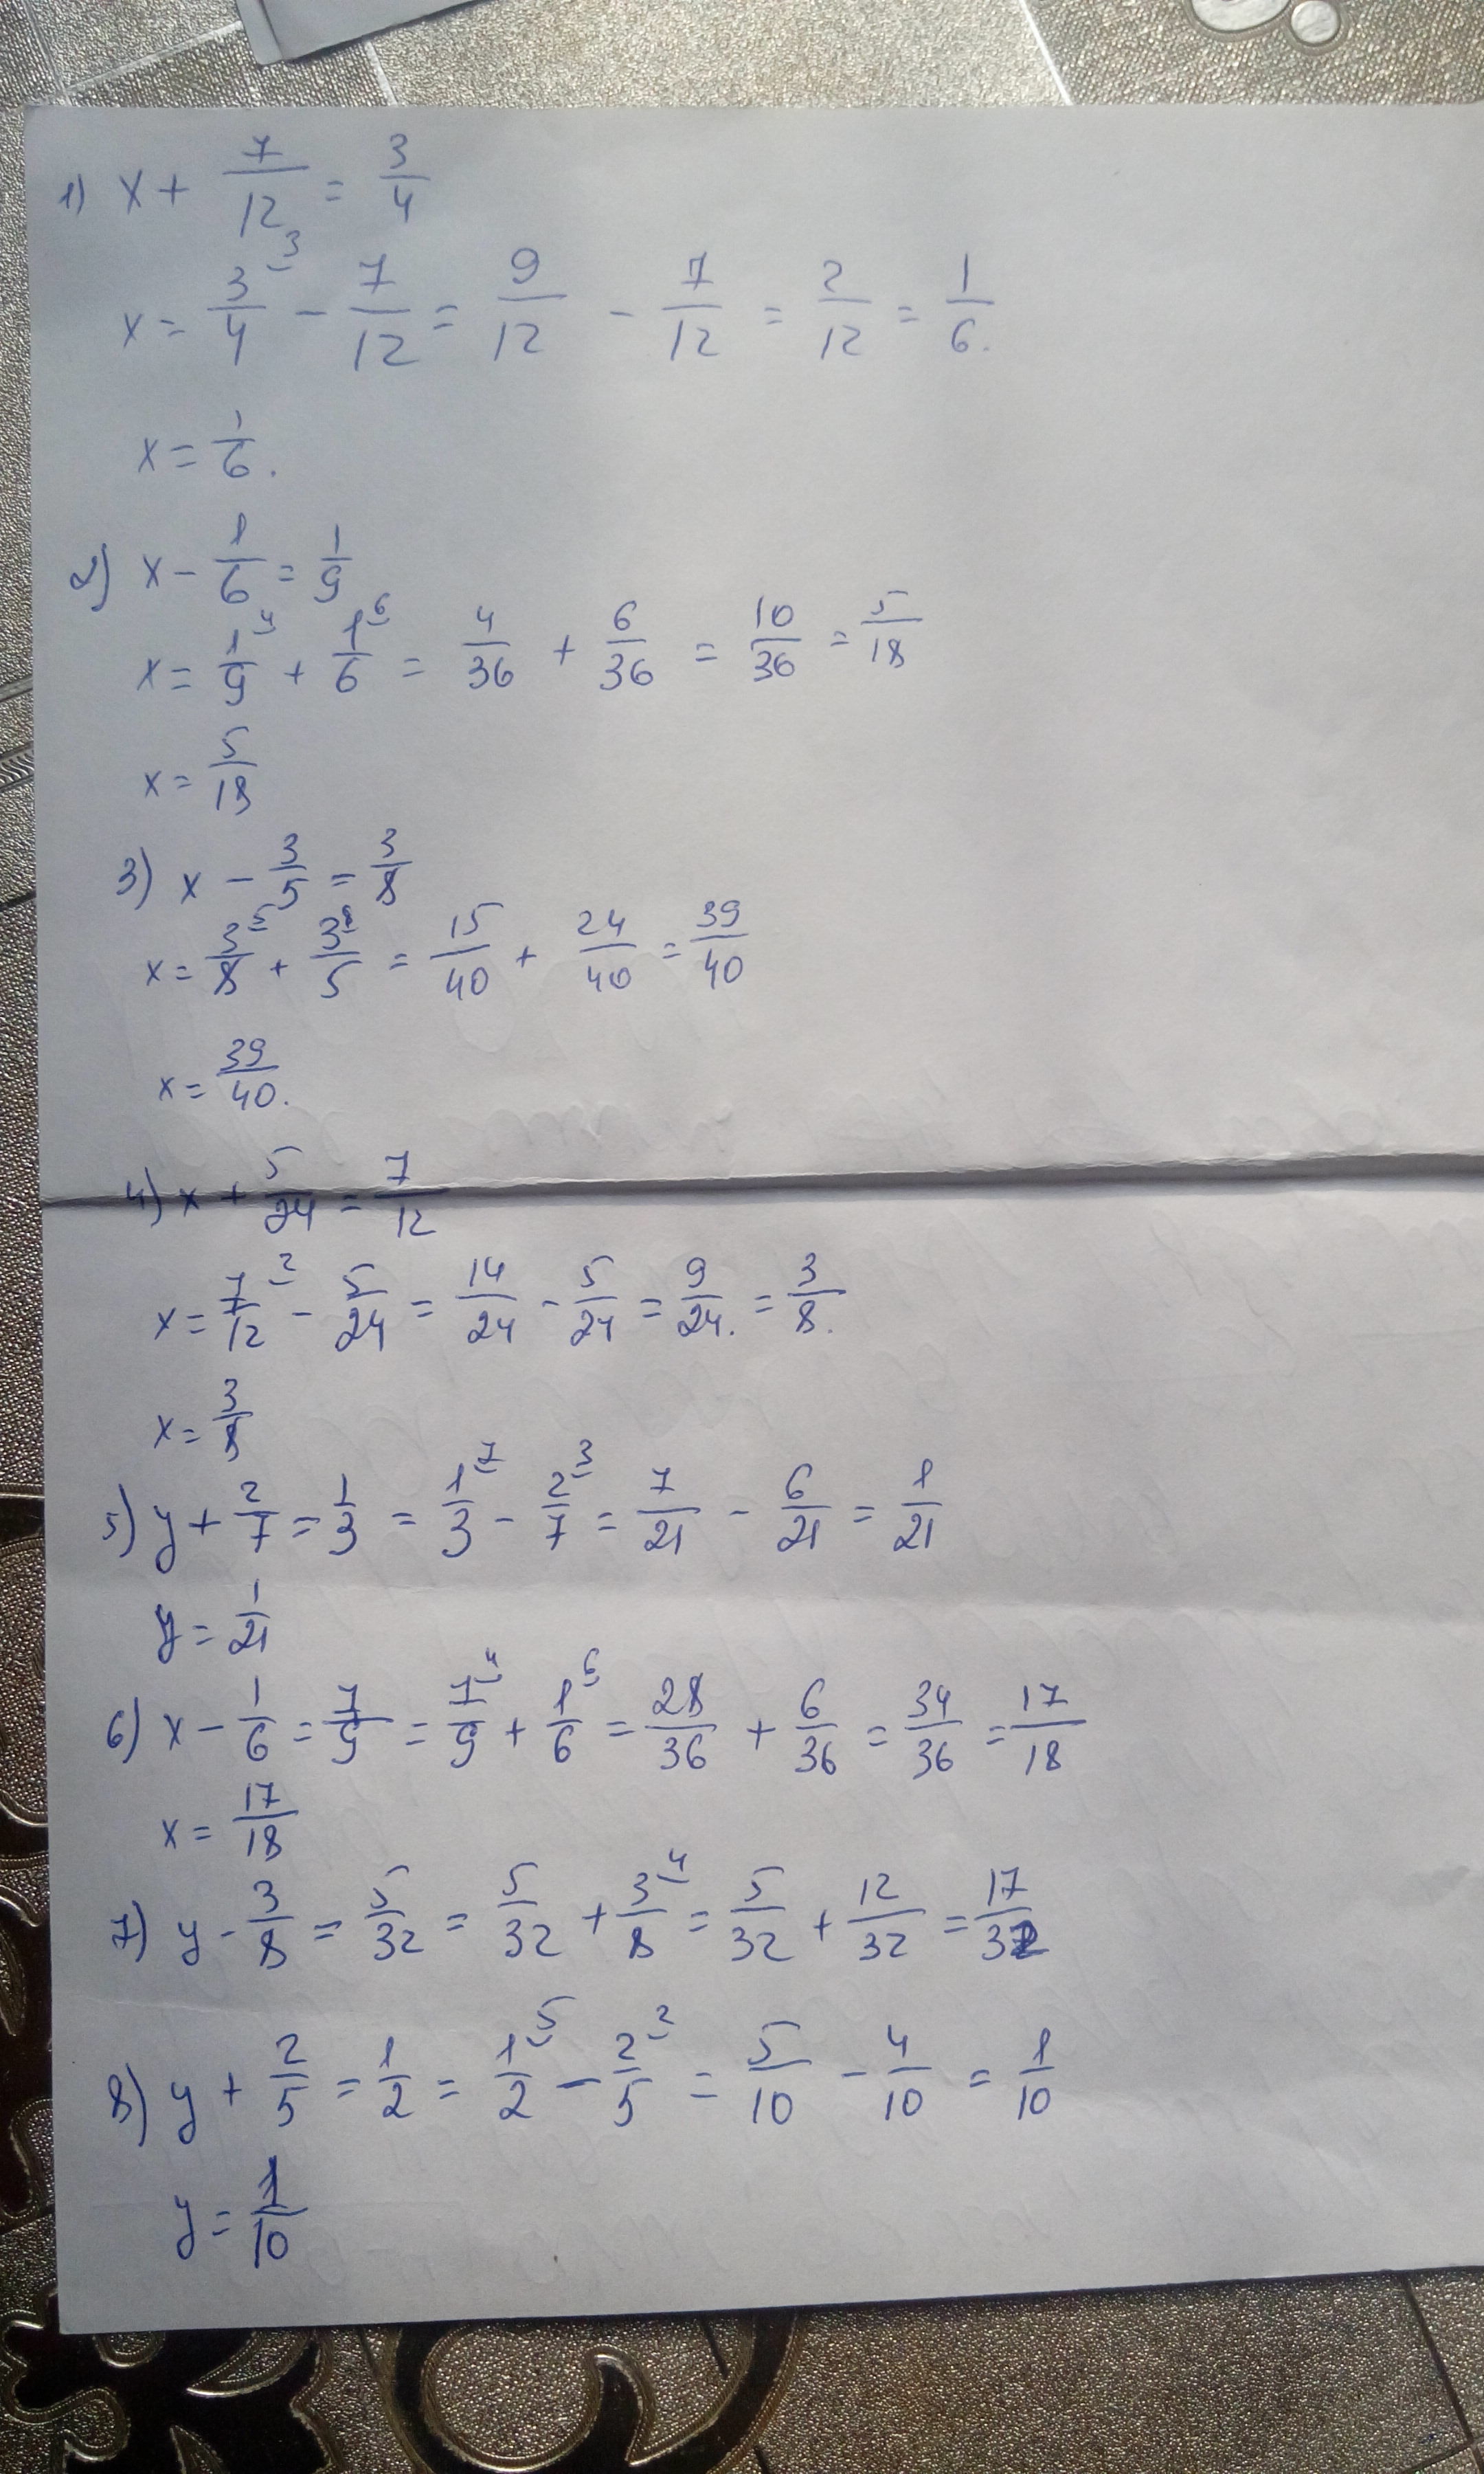 1) x + 7/12 = 3/4
x = 3/4 3 - 7/12 = 9/12 - 7/12 = 2/12 = 1/6.
x = 1/6.
2) x - 1/6 = 1/9
x = 1/9 4 + 1/6 6 = 4/36 + 6/36 = 10/36 = 5/18
x = 5/18
3) x - 3/5 = 3/8
x = 3/8 5 + 3/5 8 = 15/40 + 24/40 = 39/40
x = 39/40.
4) x + 5/24 = 7/12
x = 7/12 2 - 5/24 = 14/24 - 5/24 = 9/24. = 3/8.
x = 3/8
5) y + 2/7 = 1/3 = 1/3 7 - 2/7 3 = 7/21 - 6/21 = 1/21
y = 1/21
6) x - 1/6 = 7/9 = 7/9 4 + 1/6 6 = 28/36 + 6/36 = 34/36 = 17/18
x = 17/18
7) y - 3/8 = 5/32 = 5/32 + 3/8 4 = 5/32 + 12/32 = 17/32
8) y + 2/5 = 1/2 = 1/2 5 - 2/5 2 = 5/10 - 4/10 = 1/10
y = 1/10